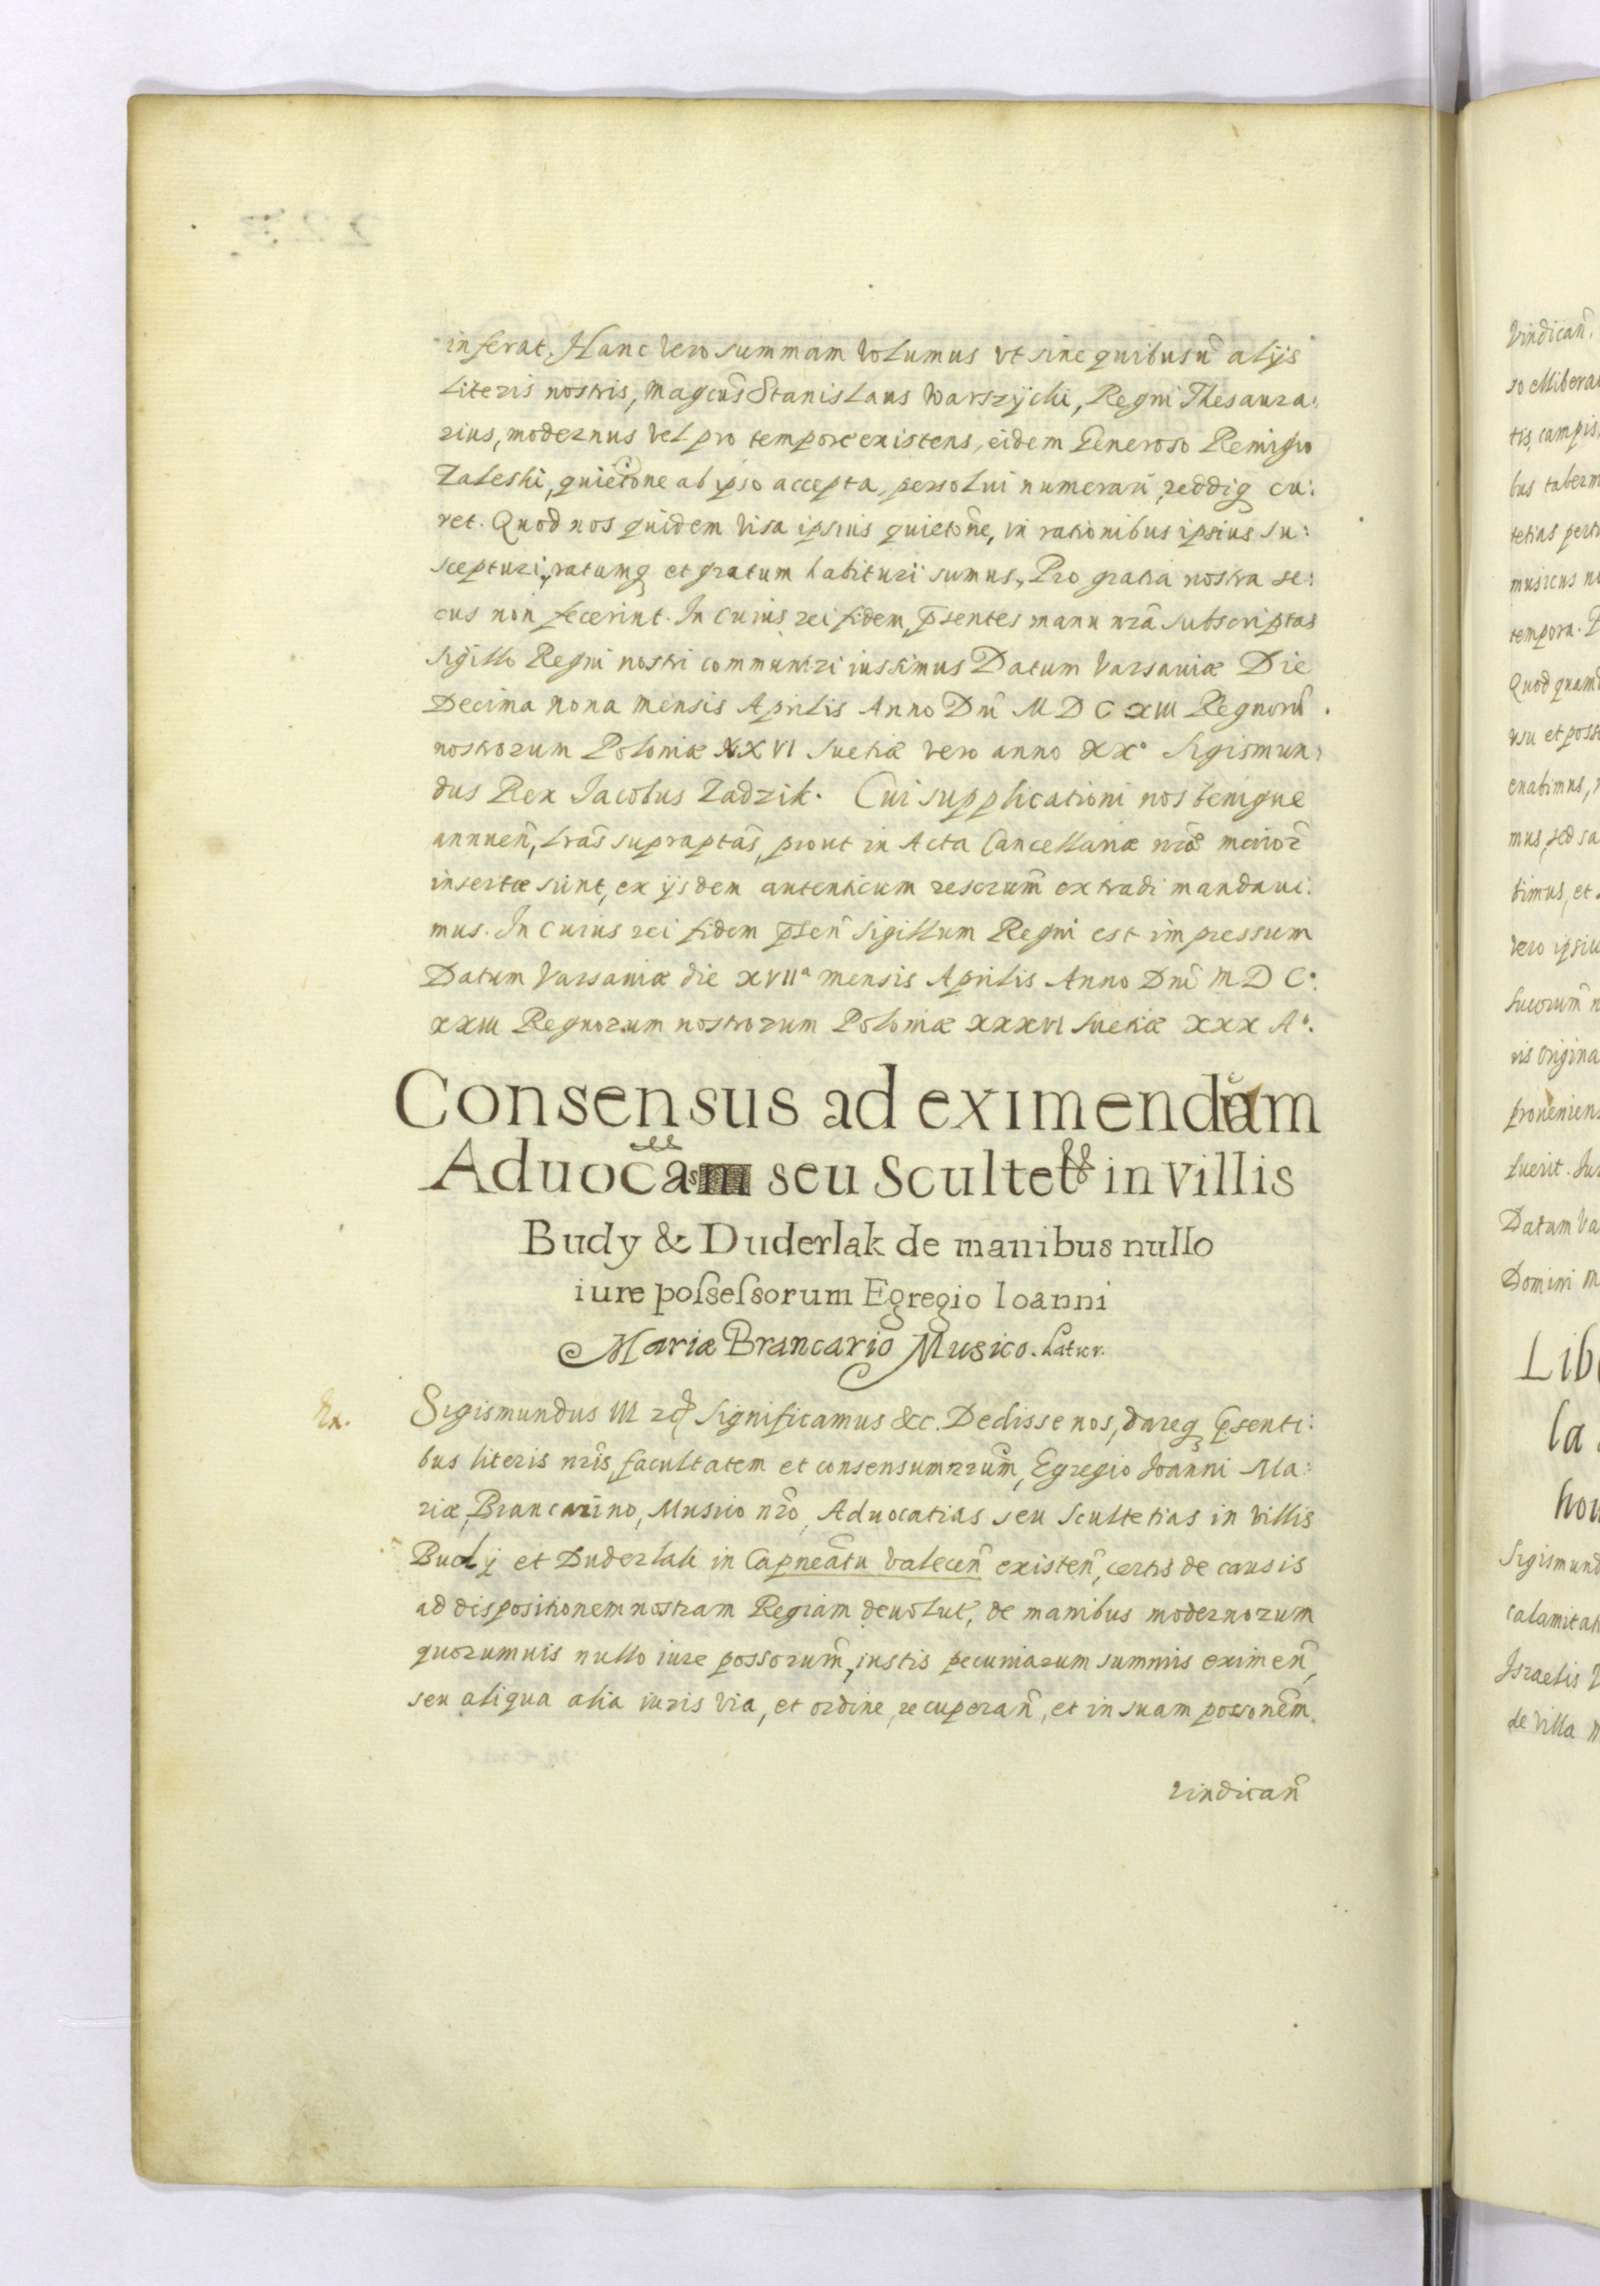 inferat, Hanc vero summam volumus vt sine quibusuis alijs
literis nostris, Magcus Stanislaus Warszycki, Regni Thesaura:
rius, modernus vel pro tempore existens, eidem Generoso Remigio
Zaleski, quietone ab ipso accepta, persolui numerari, reddiq cu:
ret. Quod nos quidem visa ipsius quietone, in rationibus ipsius su:
scepturi, ratumq et gratum habituri sumus, Pro gratia nostra se:
cus non fecerint. In cuius rei fidem, pñtes manu nrã subscriptas
Sigillo Regni nostri communiri iussimus Datum Varsauiæ Die
Decima nona Mensis Aprilis Anno Dni M D C XIII Regnorũ
nostrorum Poloniæ XXVI Suetiæ vero anno XXº Sigismun:
dus Rex Jacobus Zadzik. Cui supplicationi nos benigne
annuen, lrãs supraptãs, prout in Acta Cancellariæ nræ maior
insertæ sunt, ex ijsdem autenticum rescrum extradi mandaui:
mus. In cuius rei fidem psen Sigillum Regni est impressum
Datum Varsauiæ die XVIIª Mensis Aprilis Anno Dni M D C.
XXIII Regnorum nostrorum Poloniæ XXXVI Suetiæ XXX Aº.
Consensus ad eximendam
Aduocãs seu Scultet in Villis
Budy & Duderlak de manibus nullo
iure poſseſsorum Egregio Ioanni
Mariæ Brancario Musico. Datur.
Rx.
Sigismundus III Significamus &c. Dedisse nos, dareq psenti:
bus literis nris, facultatem et consensum nrum, Egregio Joanni Ma:
riæ, Brancarino, Musico nro, Aduocatias seu Scultetias in Villis
Budy et Duderlak in Capneãtu Valecen existen, certis de causis
ad dispositionem nostram Regiam deuolut, de manibus modernorum
quorumuis nullo iure possorum, iustis pecuniarum summis eximen,
seu aliqua alia iuris via, et ordine, recuperan, et in suam possonem
vindican
vindican
tis, campis,
bus tabern
musicus
tempora.
Quod
usu et
mus, sed sa
bimus, et
vero ipsiu
ris origina
prouenien
fuerit.
Datum Va
Domini M
Lib
la
Sigismund
Israelis
de Villa